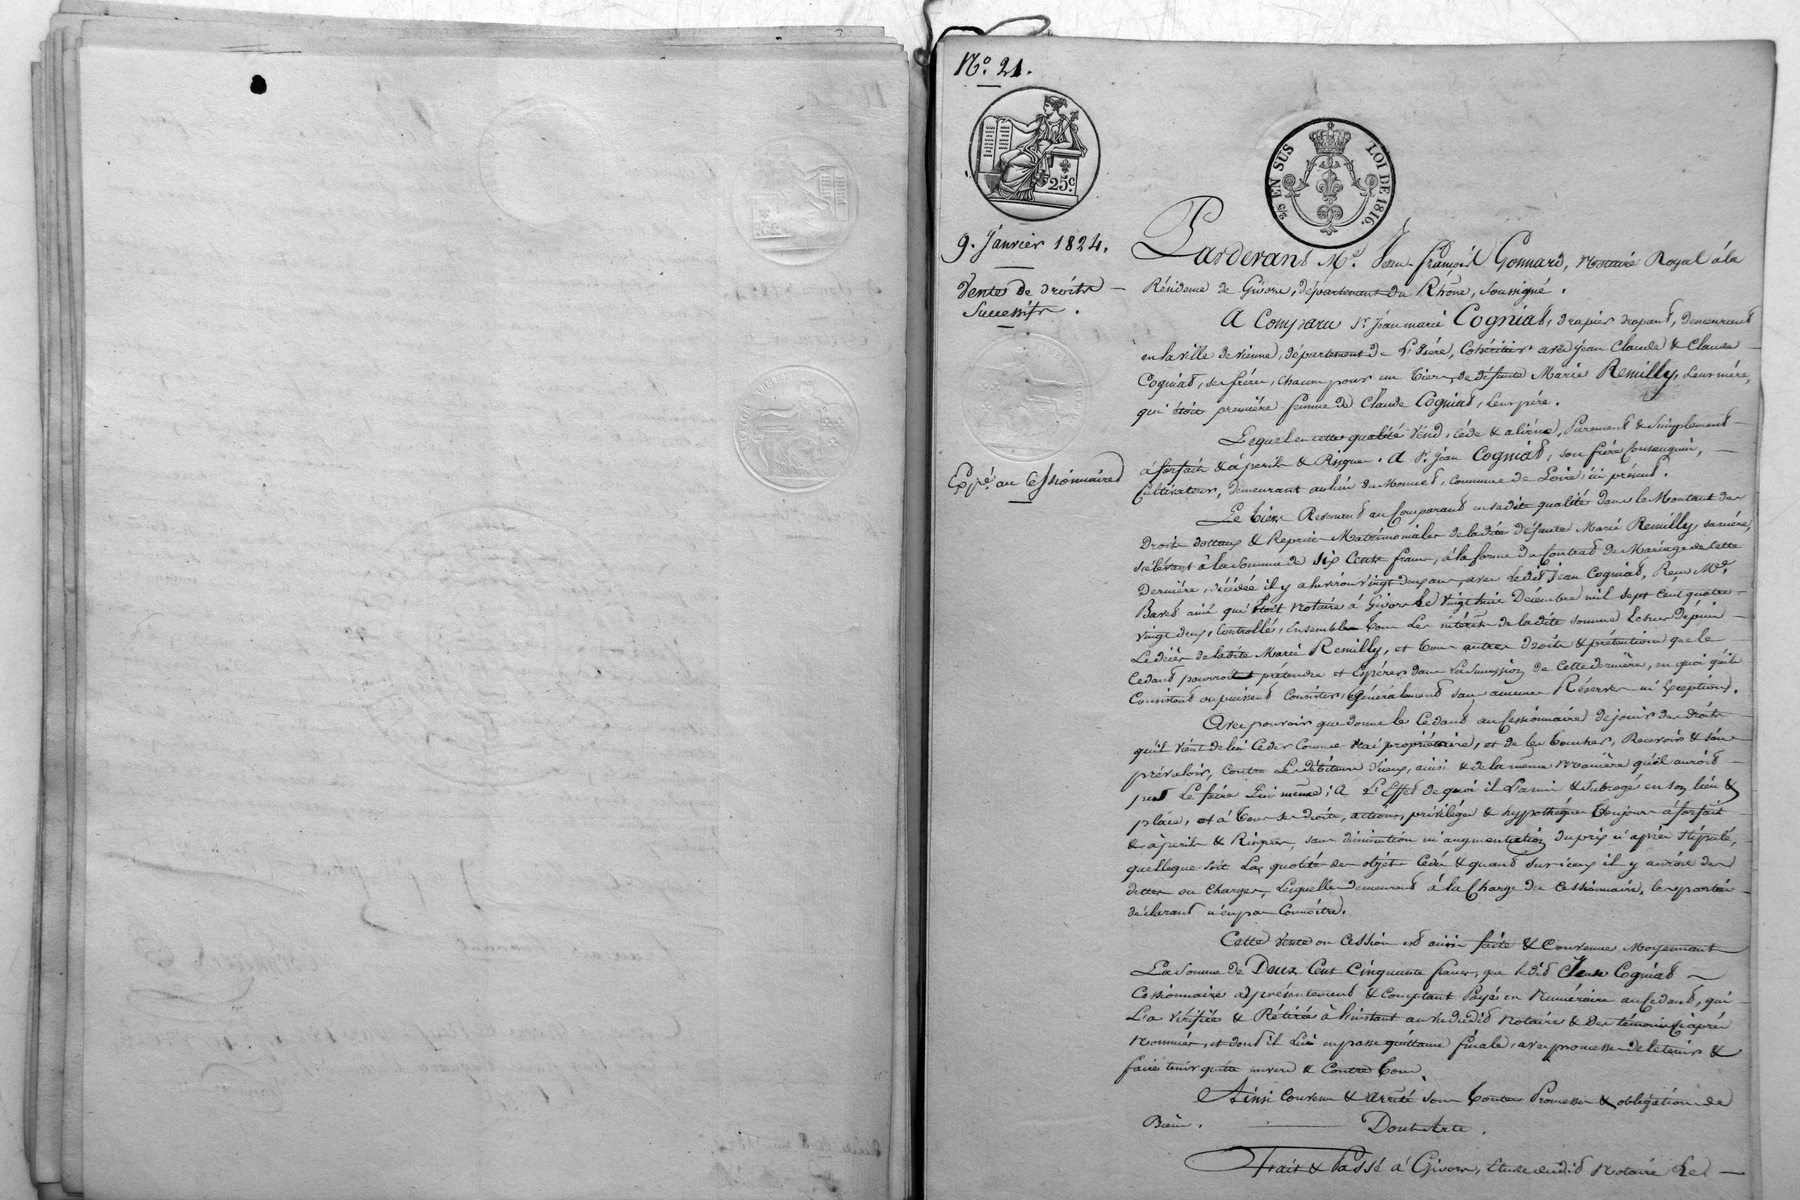 N.º 21.
25 c.
EN SUS
LOI DE 1816.
9. Janvier 1824.
Vente de droits
Successifs.
Exp.é au Cessionnaire
Pardevant M.e Jean-françois Gonnard, Notaire Royal à la
Résidence de Givors, département du Rhône, soussigné.
A Comparu S.r Jean marie Cogniat, drapier drapant, demeurant
en la ville de vienne, département de L'Isère, Cohéritier avec Jean Claude & Claude
Cogniat, ses frères, chacun pour un tiers, de défunte Marie Remilly, leur mère,
qui étoit première femme de Claude Cogniat, leur père.
Lequel en cette qualité vend, cède & aliène, purement & simplement
à forfait & à perils & Risques. A S.r Jean Cogniat, son frère Consanguin,
Cultivateur, demeurant au lieu du Monnet, commune de Loire, ici présent.
Le tiers Revenant au Comparant en sa dite qualité dans le Montant des
Droits dottaux & Reprises Matrimoniales de la dite défunte Marie Remilly, sa mère,
s'élévant à la somme de six Cents francs, à la forme du Contrat de Mariage de Cette
Dernière, décédée il y a environ vingt deux ans, avec Ledit Jean Cogniat, Reçu M.e
ainé qui étoit Notaire à Givors Le vingt huit Décembre mil sept cent quatre
vingt deux, Controllé, Ensemble tous Les intérêts de la dite somme Echus dépuis
Le décès de la dite Marie Remilly, et tous autres droits & prétentions que le
Cédant pourroit prétendre et Espérer dans La Succession de Cette dernière, en quoi qu'ils
Consistent ou puissent Consister, Généralement sans aucune Réserve ni Exception.
Avec pouvoir que donne le Cédant au Cessionnaire de jouir des droits
qu'il vient de lui Céder Comme vrai propriétaire, et de les toucher, Recevoir & s'en
prévaloir, Contre Les débiteurs d'iceux, ainsi & de la même Manière qu'il auroit
pu Le faire Lui même; A L'Effet de quoi il L'a mis & subrogé en son lieu &
place, et à tous ses droits, actions, privilèges & hypothèques toujours à forfait
& à perils & Risques, sans diminution ni augmentation du prix ci après stipulé,
quelle que soit La quotité des objets Cédés & quand sur iceux il y auroit des
dettes ou Charges, Lesquelles demeurent à la Charge du Cessionnaire, les parties
déclarant n'en pas Connoitre.
Cette vente ou Cession est ainsi faite & Convenue Moyennant
La Somme de Deux Cent Cinquante francs, que ledit Jean Cogniat
Cessionnaire a présentement & Comptant Payé en Numéraire au Cédant, qui
L'a vérifiée & Rétirée à l'instant au vu dudit Notaire & des témoins ci après
Nommés, et dont il Lui en passe quittance finale, avec promesse de le tenir &
faire tenir quitte envers & Contre tous.
Ainsi Convenu & arrêté sous toutes Promesses & obligation de
Biens. Dont Acte.
Fait & Passé à Givors, Etude dudit Notaire Le